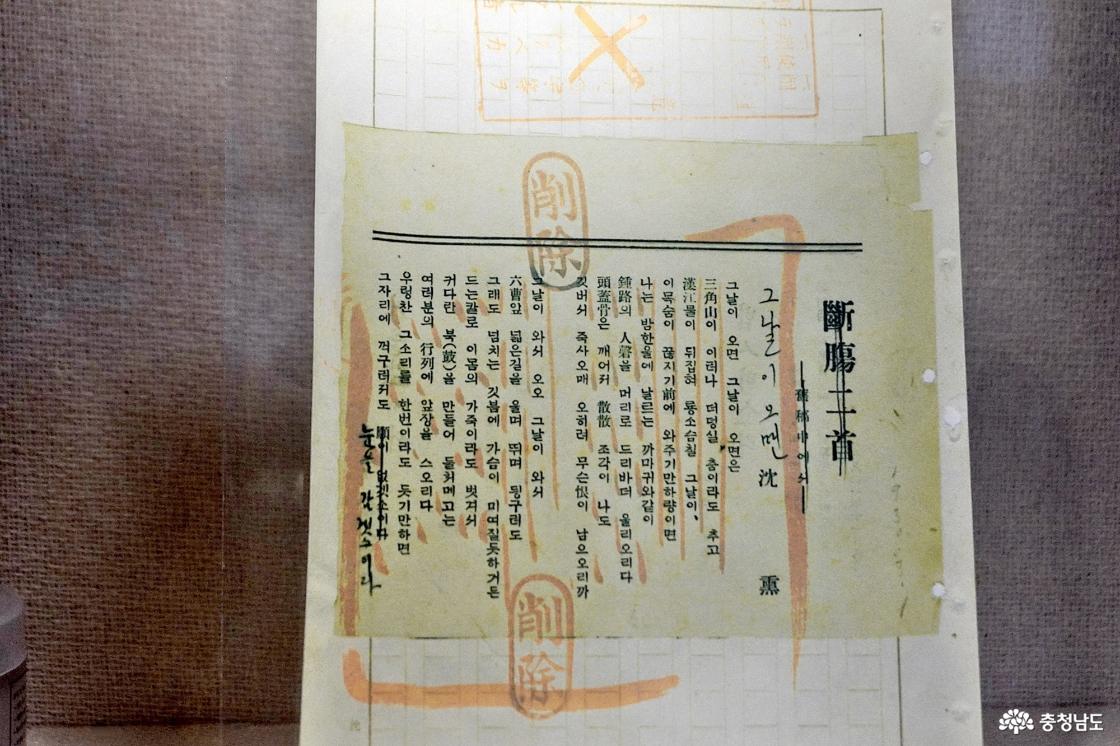 斷腸二首
舊稿中에서
그날이 오면 沈 熏
그날이 오면 그날이 오면은
三角山이 이러나 더덩실 춤이라도 추고
漢江물이 뒤집혀 룡소슴칠 그날이,
이목숨이 끊지기前에 와주기만하량이면
나는 밤한울에 날르는 까마귀와같이
鍾路의 人磬을 머리로 드리바더 울리오리다
頭蓋骨은 깨어저 散散 조각이 나도
깃버서 죽사오매 오히려 무슨恨이 남으오리까
그날이 와서 오오 그날이 와서
六曹앞 넓은길을 울며 뛰며 뒹구러도
그래도 넘치는 깃븜에 가슴이 미여질듯하거든
드는칼로 이몸의 가죽이라도 벗겨서
커다란 북(鼓)을 만들어 둘처메고는
여러분의 行列에 앞장을 스오리다
우렁찬 그소리를 한번이라도 듯기만하면
그자리에 꺽구러저도 願이 없겟소이다
눈을 감겟소이다
削除
削除
충청남도